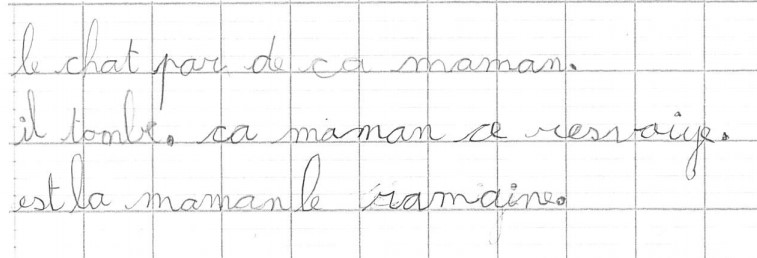 le chat par de ca maman.
il tombe. ca maman ce resvaiye.
est la maman le ramaine.